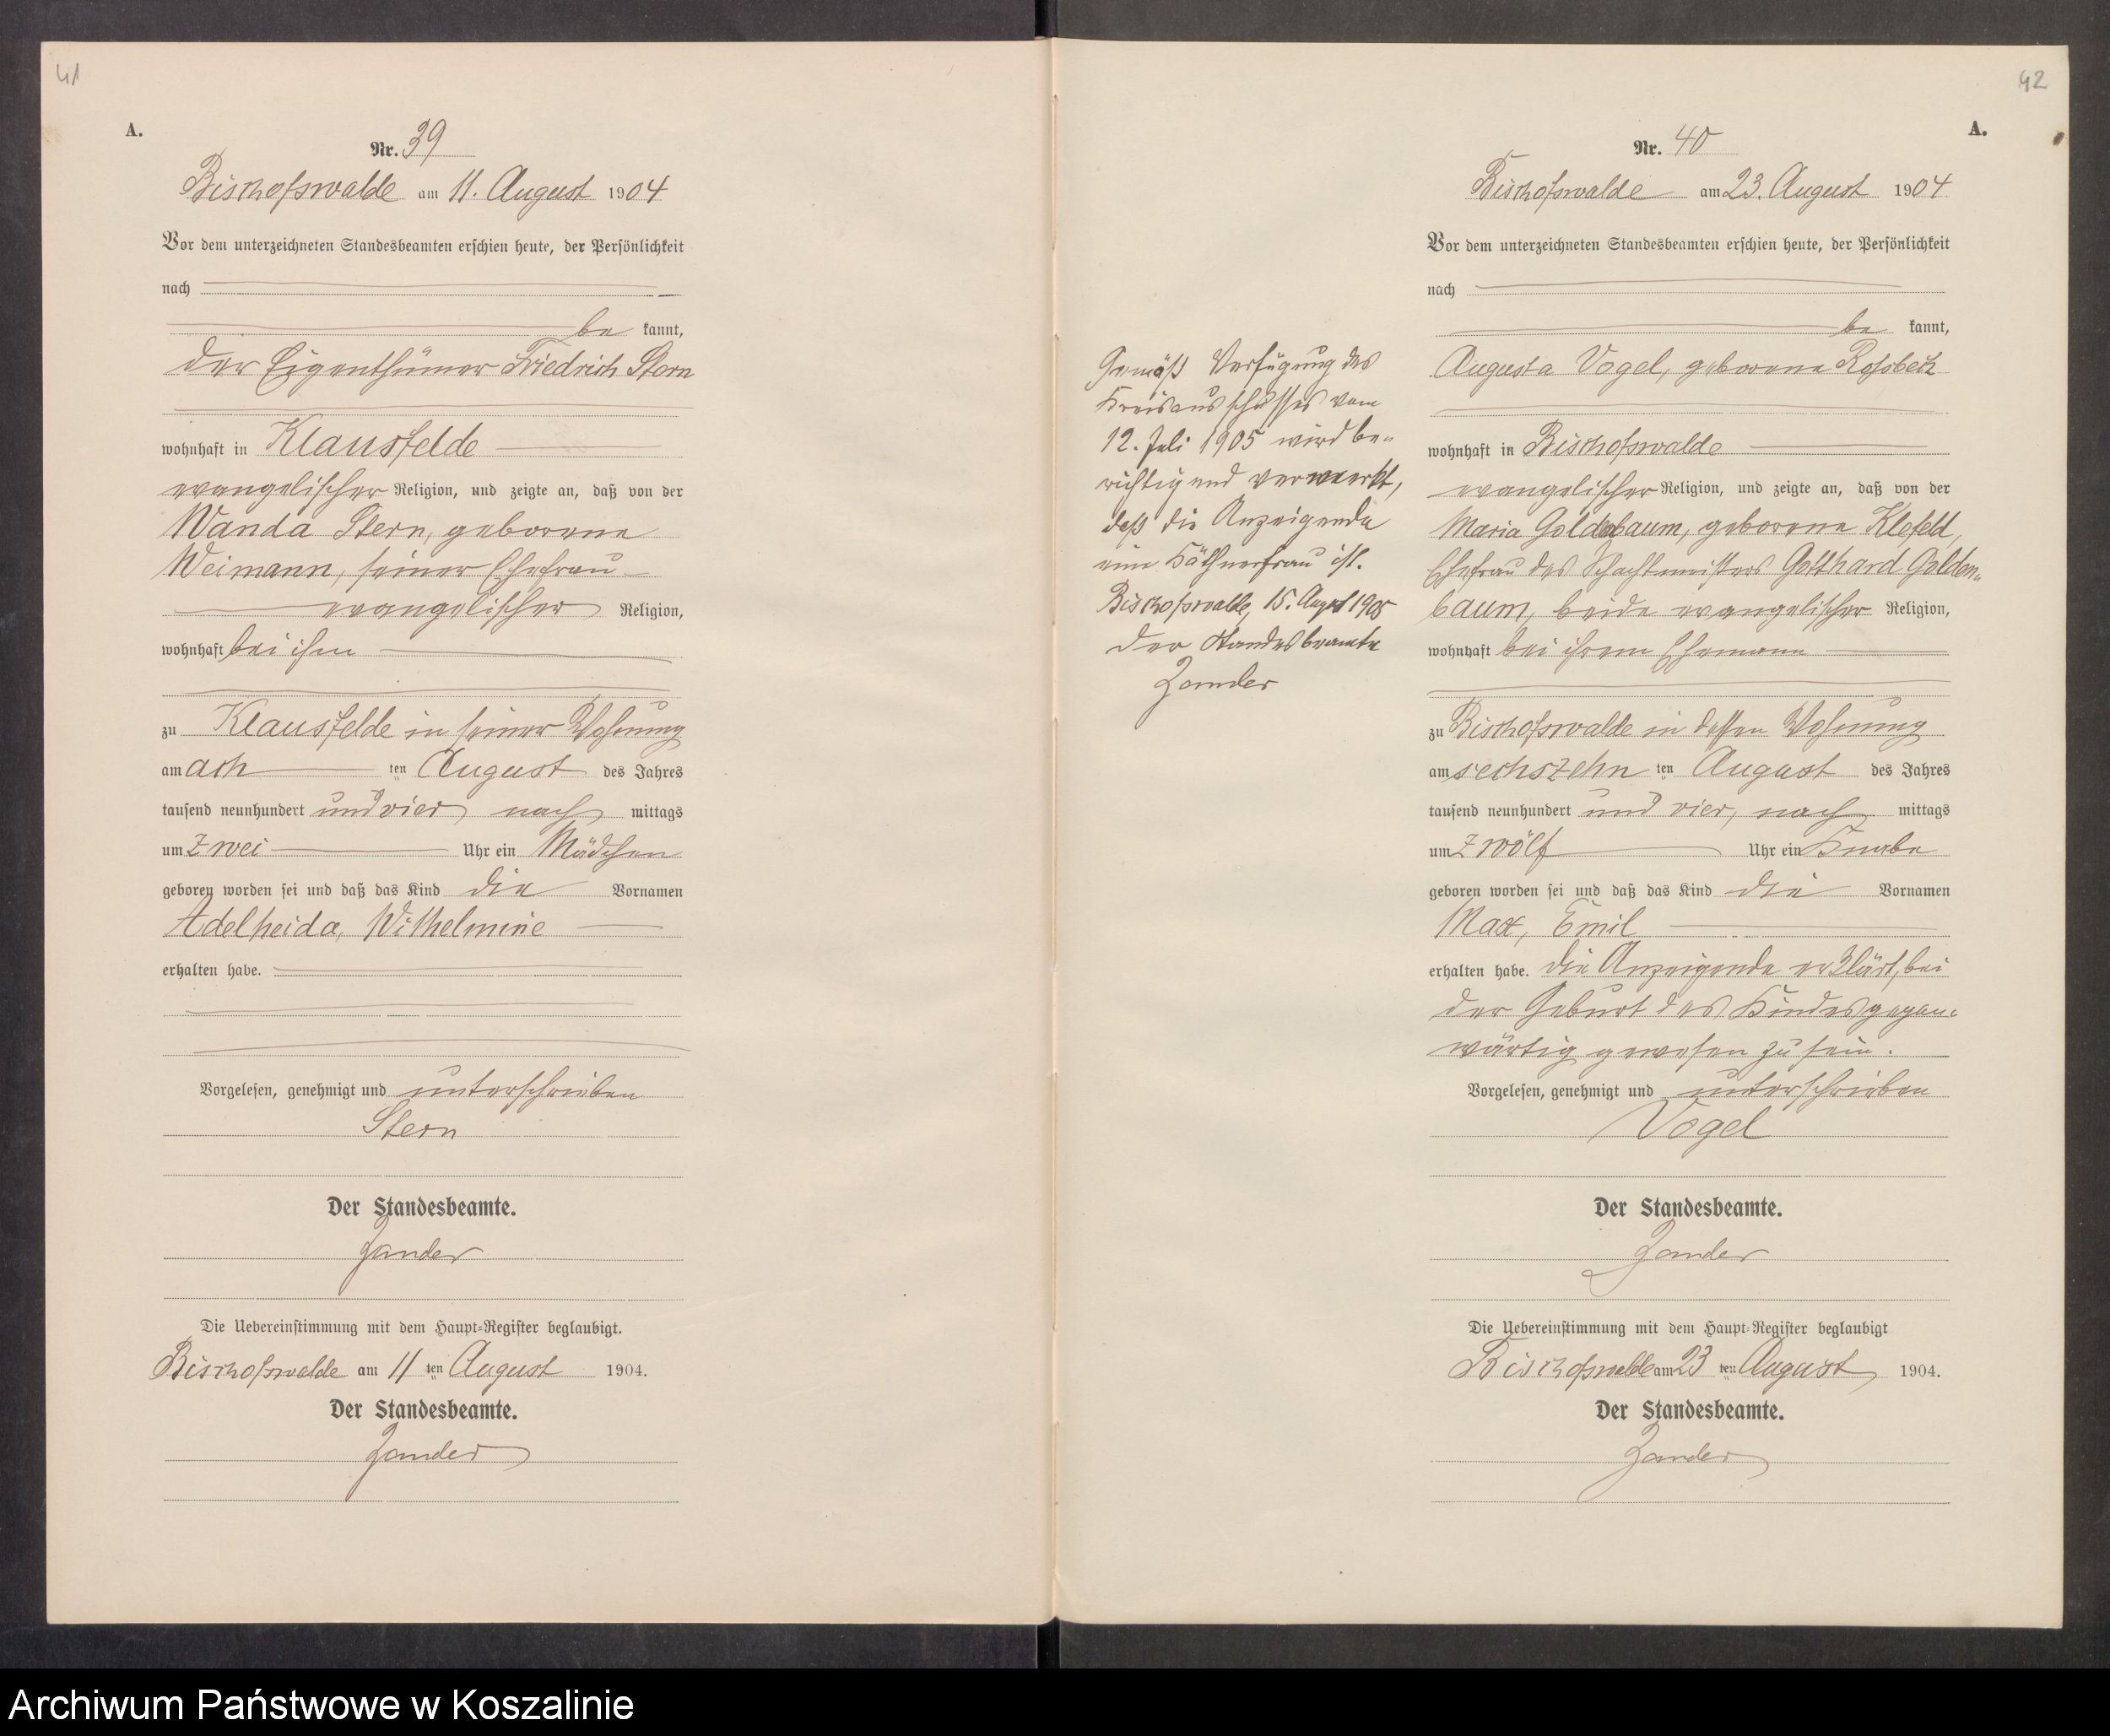 41
A.
Nr. 39
Bischofswalde am 11. August 1904
Vor dem unterzeichneten Standesbeamten erschien heute, der Persönlichkeit
nach
be kannt,
der Eigenthümer Friedrich Stern
wohnhaft in Klausfelde
evangelischer Religion, und zeigte an, daß von der
Wanda Stern, geborene
Weimann, seiner Ehefrau
evangelischer Religion,
wohnhaft bei ihm
zu Klausfelde in seiner Wohnung
am ach ten August des Jahres
tausend neunhundert und vier, nach mittags
um zwei Uhr ein Mädchen
geboren worden sei und daß das Kind die Vornamen
Adelheida, Wilhelmine
erhalten habe.
Vorgelesen, genehmigt und unterschrieben
Stern
Der Standesbeamte.
Zander
Die Uebereinstimmung mit dem Haupt-Register beglaubigt.
Bischofswalde am 11 ten August 1904.
Der Standesbeamte.
Zander
42
A.
Nr. 40
Bischofswalde am 23. August 1904
Vor dem unterzeichneten Standesbeamten erschien heute, der Persönlichkeit
nach
be kannt,
Augusta Vogel, geborene
wohnhaft in Bischofswalde
evangelischer Religion, und zeigte an, daß von der
Maria Goldenbaum, geborene Klefeld,
Ehefrau des Schachtmeisters Gotthard Golden-
baum, beide evangelischer Religion,
wohnhaft bei ihrem Ehemann
zu Bischofswalde in dessen Wohnung
am sechszehn ten August des Jahres
tausend neunhundert und vier, nach mittags
um zwölf Uhr ein Knabe
geboren worden sei und daß das Kind die Vornamen
Max, Emil
erhalten habe. Die Anzeigende erklärt, bei
der Geburt des Kindes gegen-
wärtig gewesen zu sein.
Vorgelesen, genehmigt und unterschrieben
Vogel
Der Standesbeamte.
Zander
Die Uebereinstimmung mit dem Haupt-Register beglaubigt
Bischofswalde am 23 ten August 1904.
Der Standesbeamte.
Zander
Gemäß Verfügung des
Kreisausschusses vom
12. Juli 1905 wird be-
richtigend vermerkt,
daß die Anzeigende
eine Käthnerfrau ist.
Bischofswalde, 15. August 1905
Der Standesbeamte
Zander
Archiwum Państwowe w Koszalinie